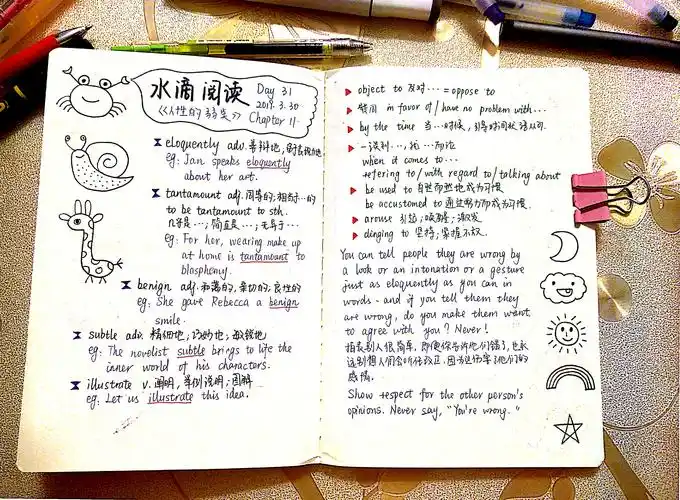 水滴阅读 Day 31
2019.3.30
《人性的弱点》 Chapter 11
eloquently adv. 善辩地; 
eg: Jan speaks eloquently
about her art.
tantamount adj. 同等的; 相当于…的
to be tantamount to sth.
几乎是…; 简直是…; 无异于…
eg: For her, wearing make up
at home is tantamount to
blasphemy.
benign adj. 和蔼的, 亲切的; 良性的
eg: She gave Rebecca a benign
smile.
subtle adv. 精细地; 巧妙地; 敏锐地
eg: The novelist subtle brings to life the
inner world of his characters.
illustrate v. 阐明, 举例说明; 图解
eg: Let us illustrate this idea.
object to 反对… = oppose to
赞同 in favor of / have no problem with…
by the time 当…时候, 引导时间状语从句.
一谈到…, 就…而论
when it comes to…
refering to / with regard to / talking about
be used to 自然而然地成为习惯
be accustomed to 通过努力而成为习惯.
arouse 引起; 唤醒; 激发
clinging to 坚持; 紧握不放.
You can tell people they are wrong by
a look or an intonation or a gesture
just as eloquently as you can in
words - and if you tell them they
are wrong, do you make them want
to agree with you? Never!
指责别人很简单, 即使你告诉他们错了, 也永
远别想人们会听你改正. 因为这伤害了他们的
感情.
Show respect for the other person's
opinions. Never say, "You're wrong."